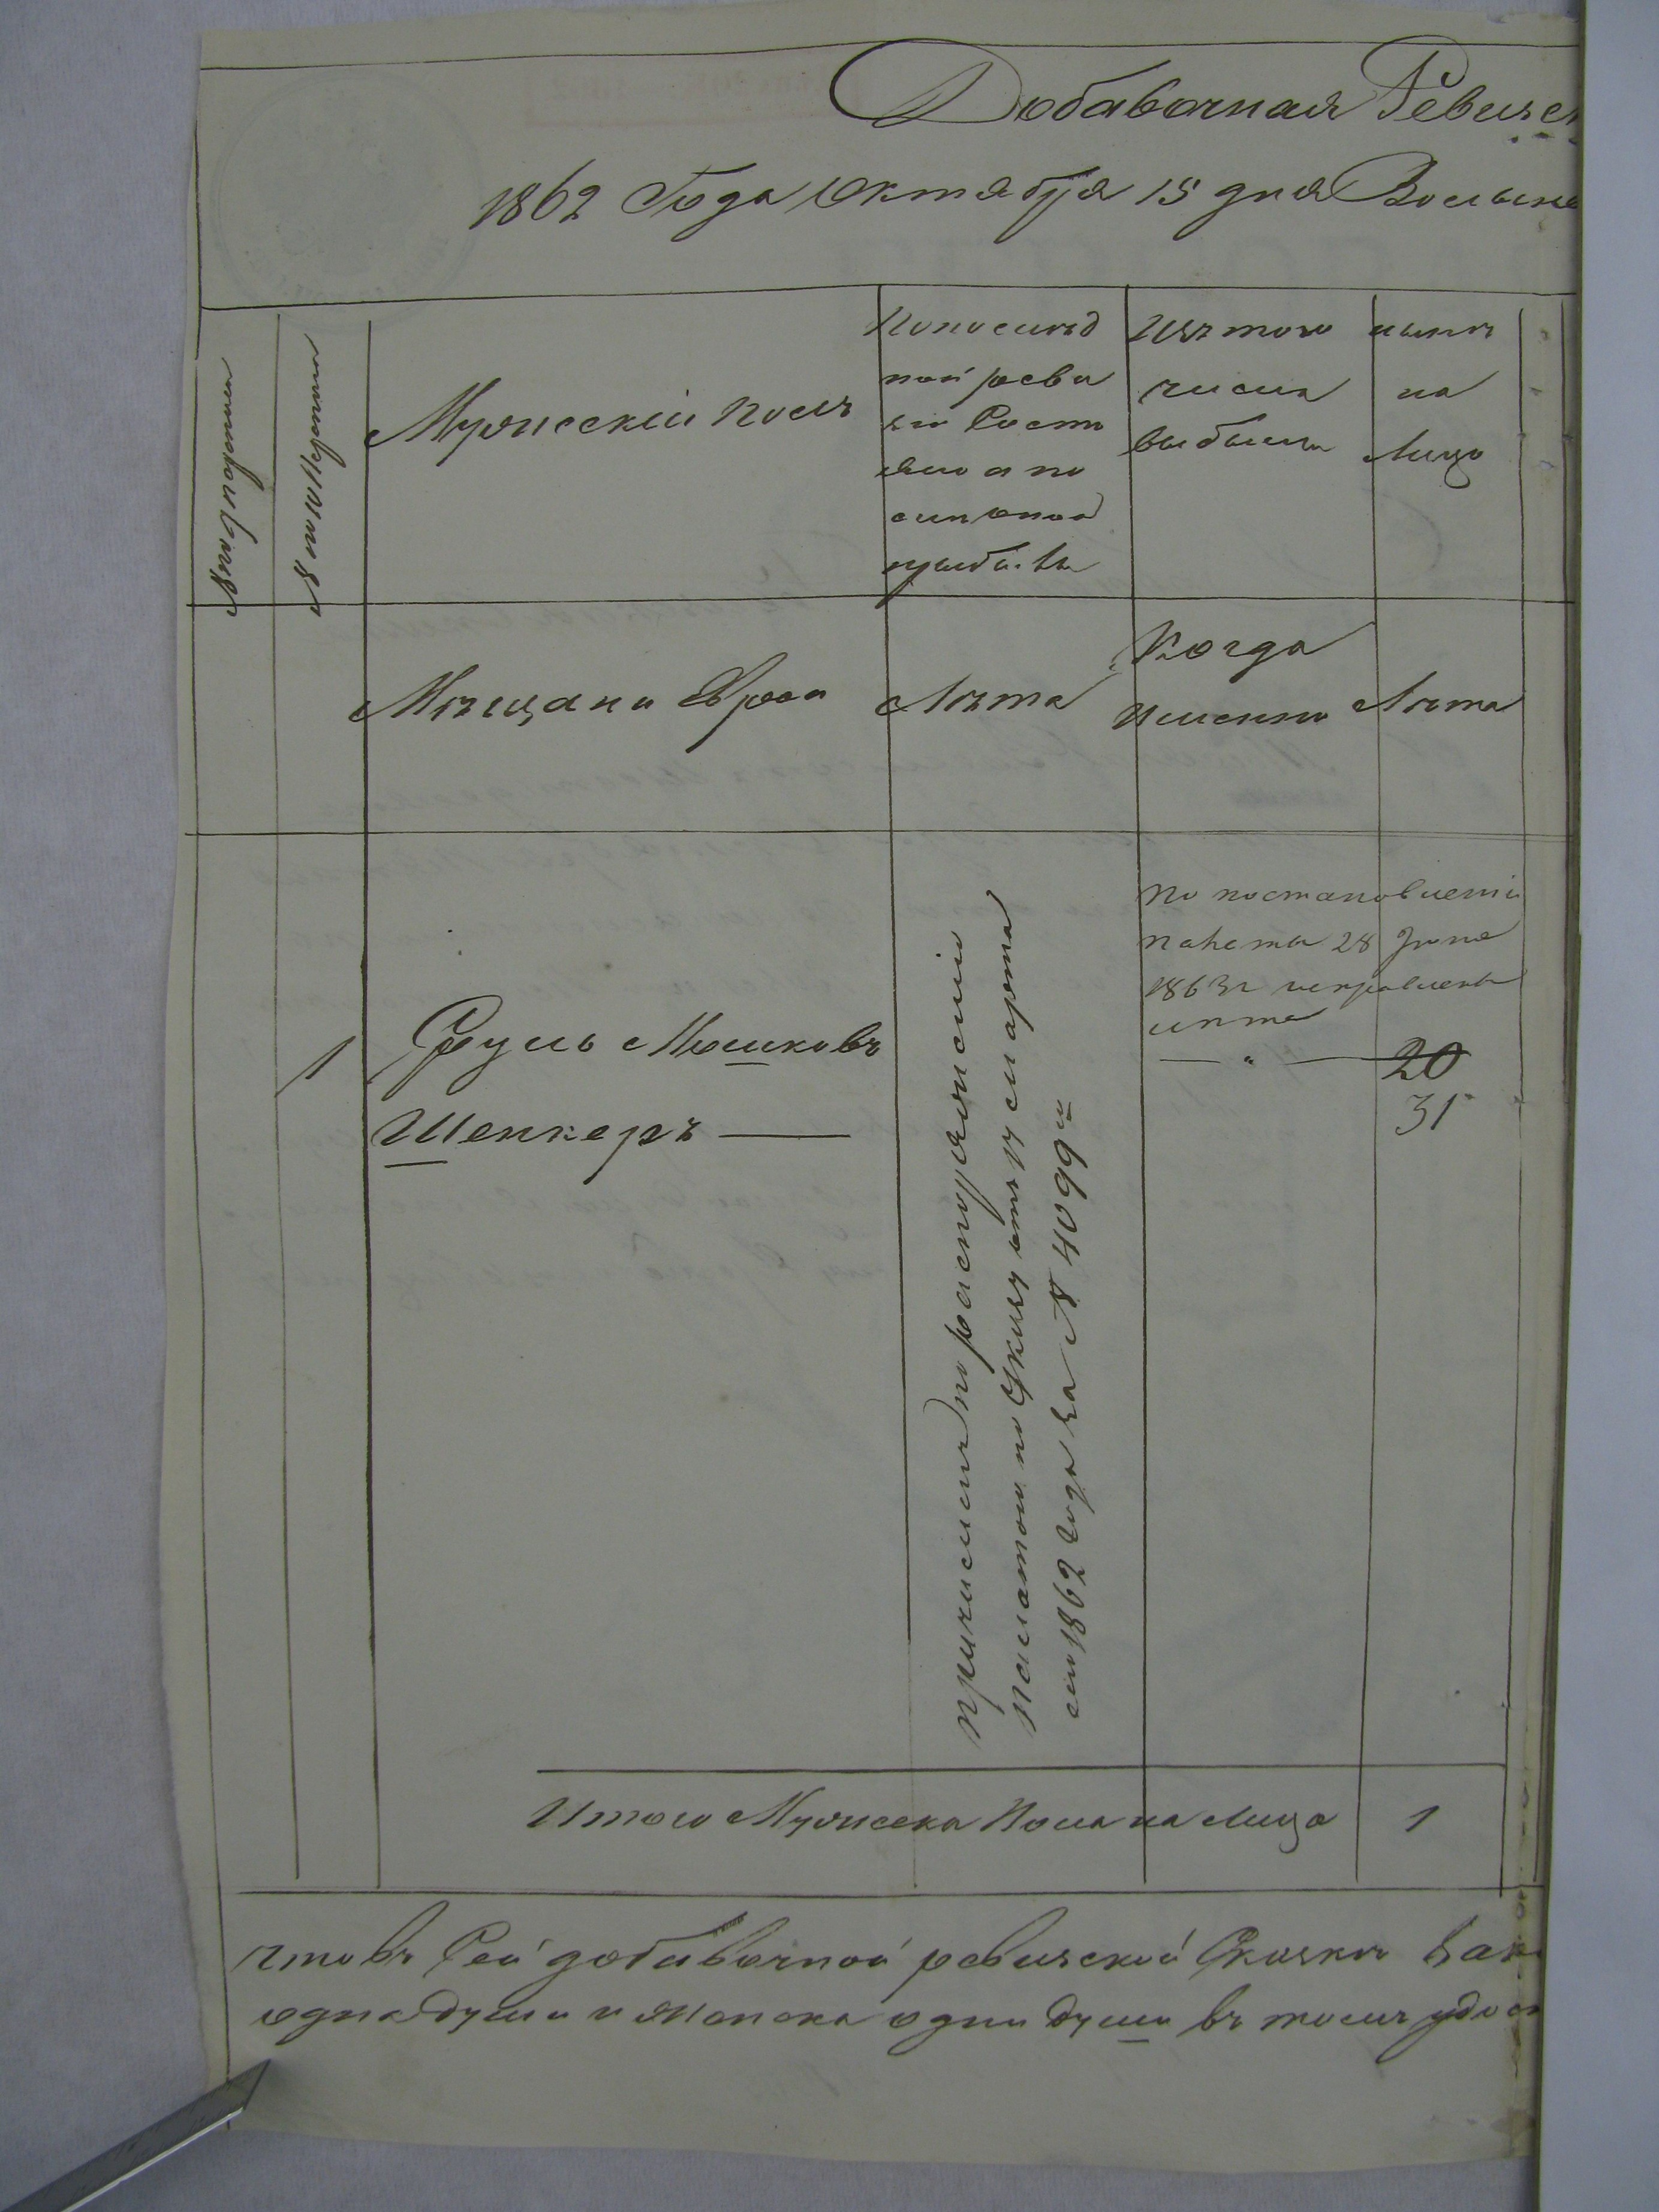 Добавочная Ревизск
1862 Года Октября 15 дня Волынс
№ по ревизіи
Мужескій полъ
По послѣд
ней реви
зіи Состо
яло и по
оной
прибыли
Изъ того
числа
выбыли
нынѣ
на
лицо
Мѣщани Евреи
Лѣта
Когда
именно
Лѣта
1
Сруль Мошковъ
Шенкеръ
причисленъ по распоряженію
палаты по Указу отъ 17 марта
1862 года за № 4099
По постановленію
палаты 28 Іюня
1863 г исправлены
лѣта
— " — 20
31
Итого Мужеска Пола на лицо 1
что въ Сей добавочной ревизской Сказкѣ
одна душа и Женска одна душа въ томъ удос